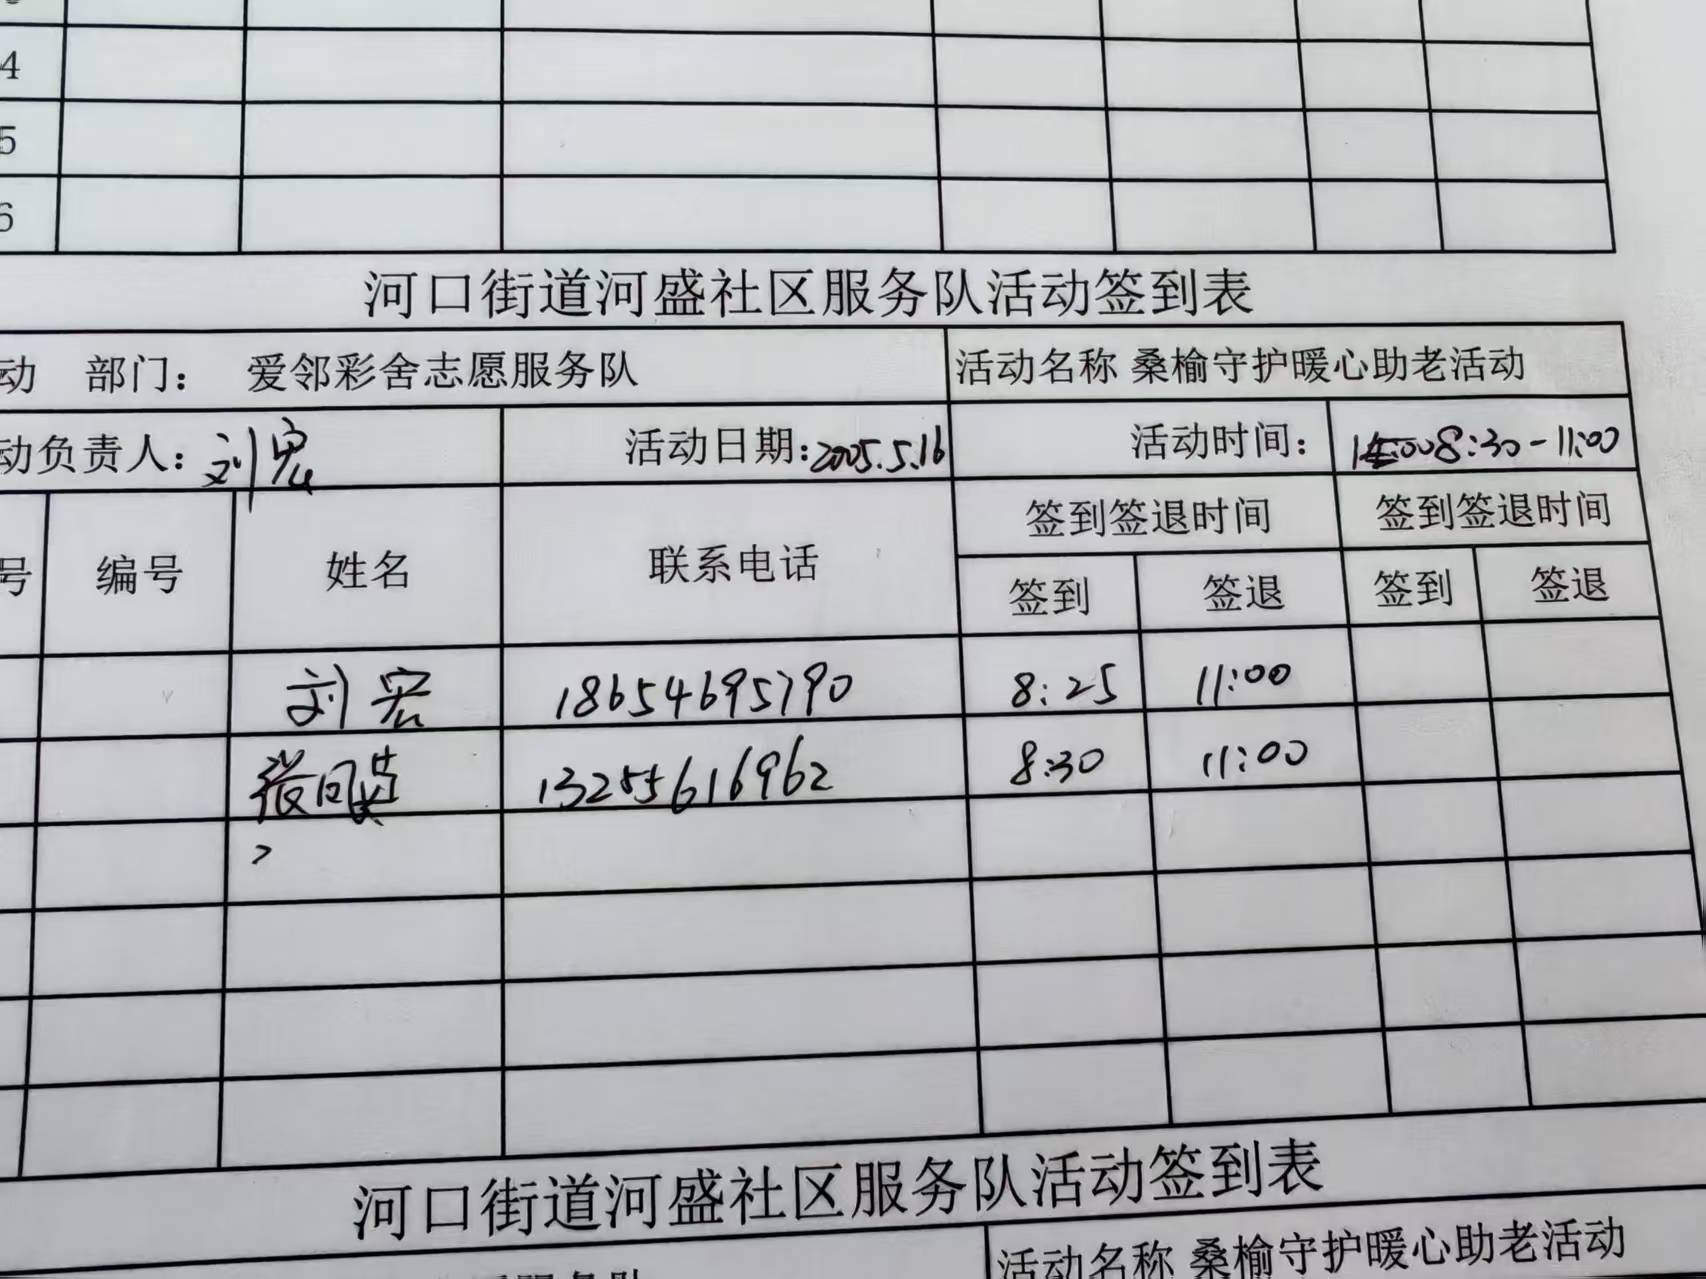 4
5
6
河口街道河盛社区服务队活动签到表
动 部门： 爱邻彩舍志愿服务队 活动名称 桑榆守护暖心助老活动
动负责人：刘宏 活动日期：2005.5.16 活动时间： 8:30-11:00
号 编号 姓名 联系电话 签到签退时间 签到签退时间
签到 签退 签到 签退
刘宏 18654695790 8:25 11:00
张 13255616962 8:30 11:00
河口街道河盛社区服务队活动签到表
活动名称 桑榆守护暖心助老活动